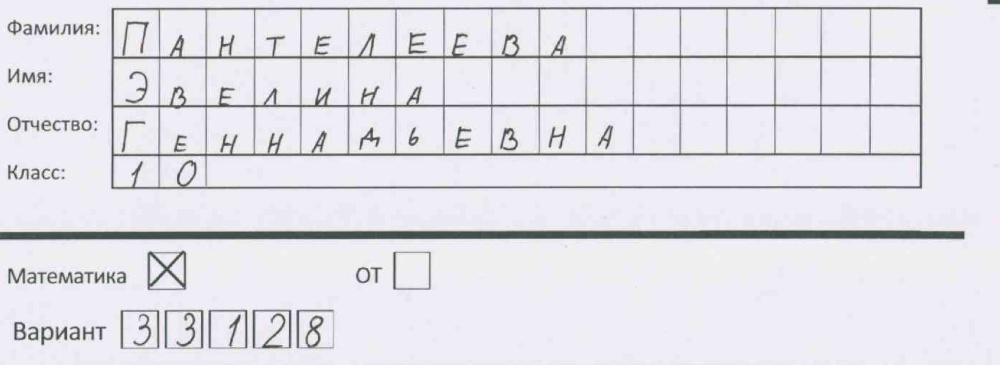 Фамилия: ПАНТЕЛЕЕВА
Имя: ЭВЕЛИНА
Отчество: ГЕННАДЬЕВНА
Класс: 10
Математика ☒ ОТ ☐
Вариант 33128